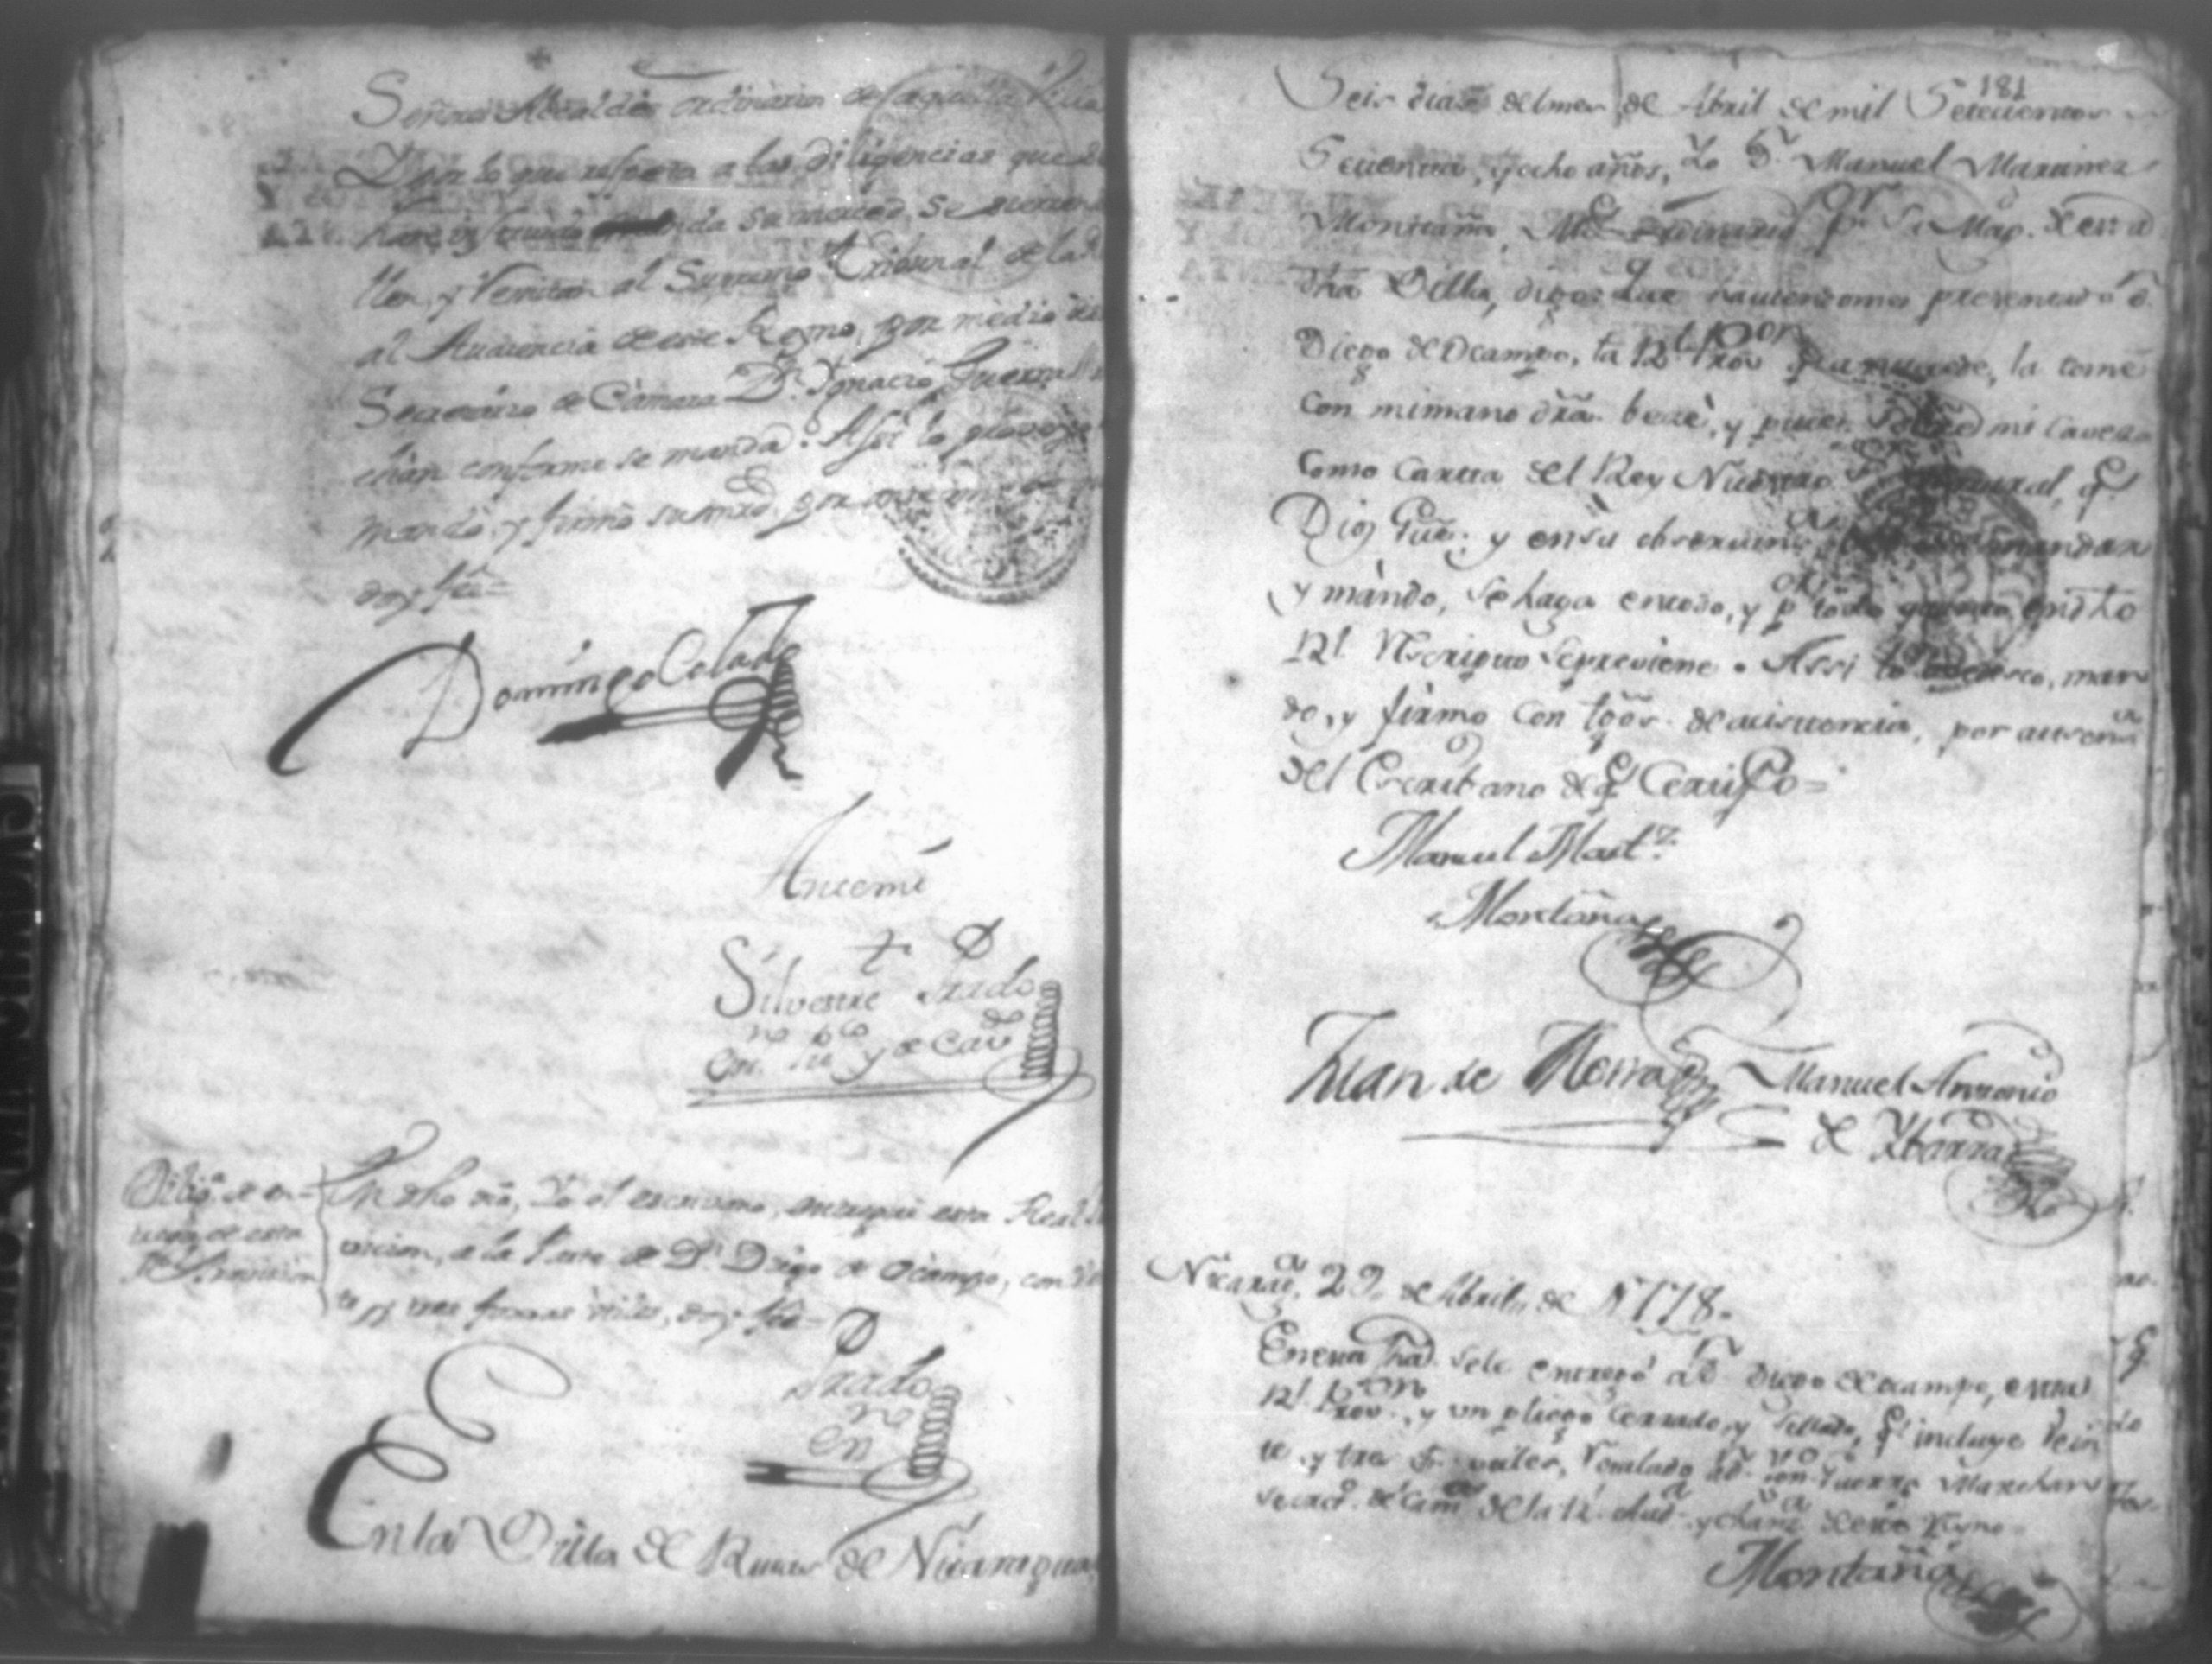 Señores Alcaldes ordinarios de aquella Villa
Y por lo que respecta a las diligencias que
han instruido su merced, se
llen y remitan al Supremo Tribunal de la R
al Audiencia de este Reyno, por medio del
Secretario de Camara Dn. Ygnacio Guerra
chan conforme se manda. Assi lo proveyó
mandó y firmó su mrd. por
doy fee=
Domingo Cabello
Antemi
Silvestre Prado
Eno. puco. y de Cavdo
Diliga. de en-
trega de esta
Rl. Provision
En dho dia, Yo el escrivano, entregué esta Real Pro
vicion, a la Parte de Dn. Diego de Ocampo, con Vein
te y tres foxas utiles, doy fee=
Prado
Eno
En la Villa de Rivas de Nicaragua
181
Seis dias del mes de Abril de mil Setecientos
Setenta, y ocho años, Yo Dn. Manuel Martinez
Montaña, Alce. Ordinario pr. S. Mag. de esta
dha Villa, digo: Que haviendome presentado Dn.
Diego de Ocampo, la Rl. Provon. qe. antecede, la tomé
con mi mano dra. besé, y puse sobre mi Caveza
como Carta del Rey Nuestro Sor. Natural, qe.
Dios Gue. y en su obserbancia mandar
y mando, se haga en todo, y pr. todo quanto en dho
Rl. Rescripto se previene. Assi lo obedesco, man
do, y firmo con tgos. de asistencia, por ausena.
del Escribano de qe. Certifco=
Manuel Martz.
Montaña
Juan de Merra
Manuel Antonio
de Ybarra
Nicaraga. 29. de Abril, de 1778.
En esta fha. sele entregó a Dn. Diego de Ocampo, esta
Rl. Provon., y un pliego cerrado, y sellado, qe. incluye vein
te, y tres fs. utiles, Rotulado a Dn. Ygno. Guerra Marchan
secreto. de Cama. de la Rl. Auda. y Chana. de este Reyno=
Montaña